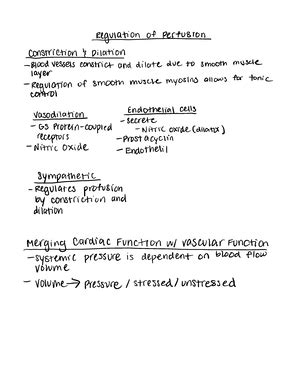 Regulation of Perfusion
Constriction & Dilation
- Blood vessels constrict and dilate due to smooth muscle
layer
- Regulation of smooth muscle myosins allows for tonic
control
Vasodilation
- GS Protein-coupled
receptors
- Nitric Oxide
Endothelial cells
- secrete
- Nitric oxide (dilator)
- Prostacyclin
- Endothelil
Sympathetic
- Regulates profusion
by constriction and
dilation
Merging Cardiac Function w/ Vascular Function
- systemic pressure is dependent on blood flow
volume
- volume → pressure / stressed / unstressed